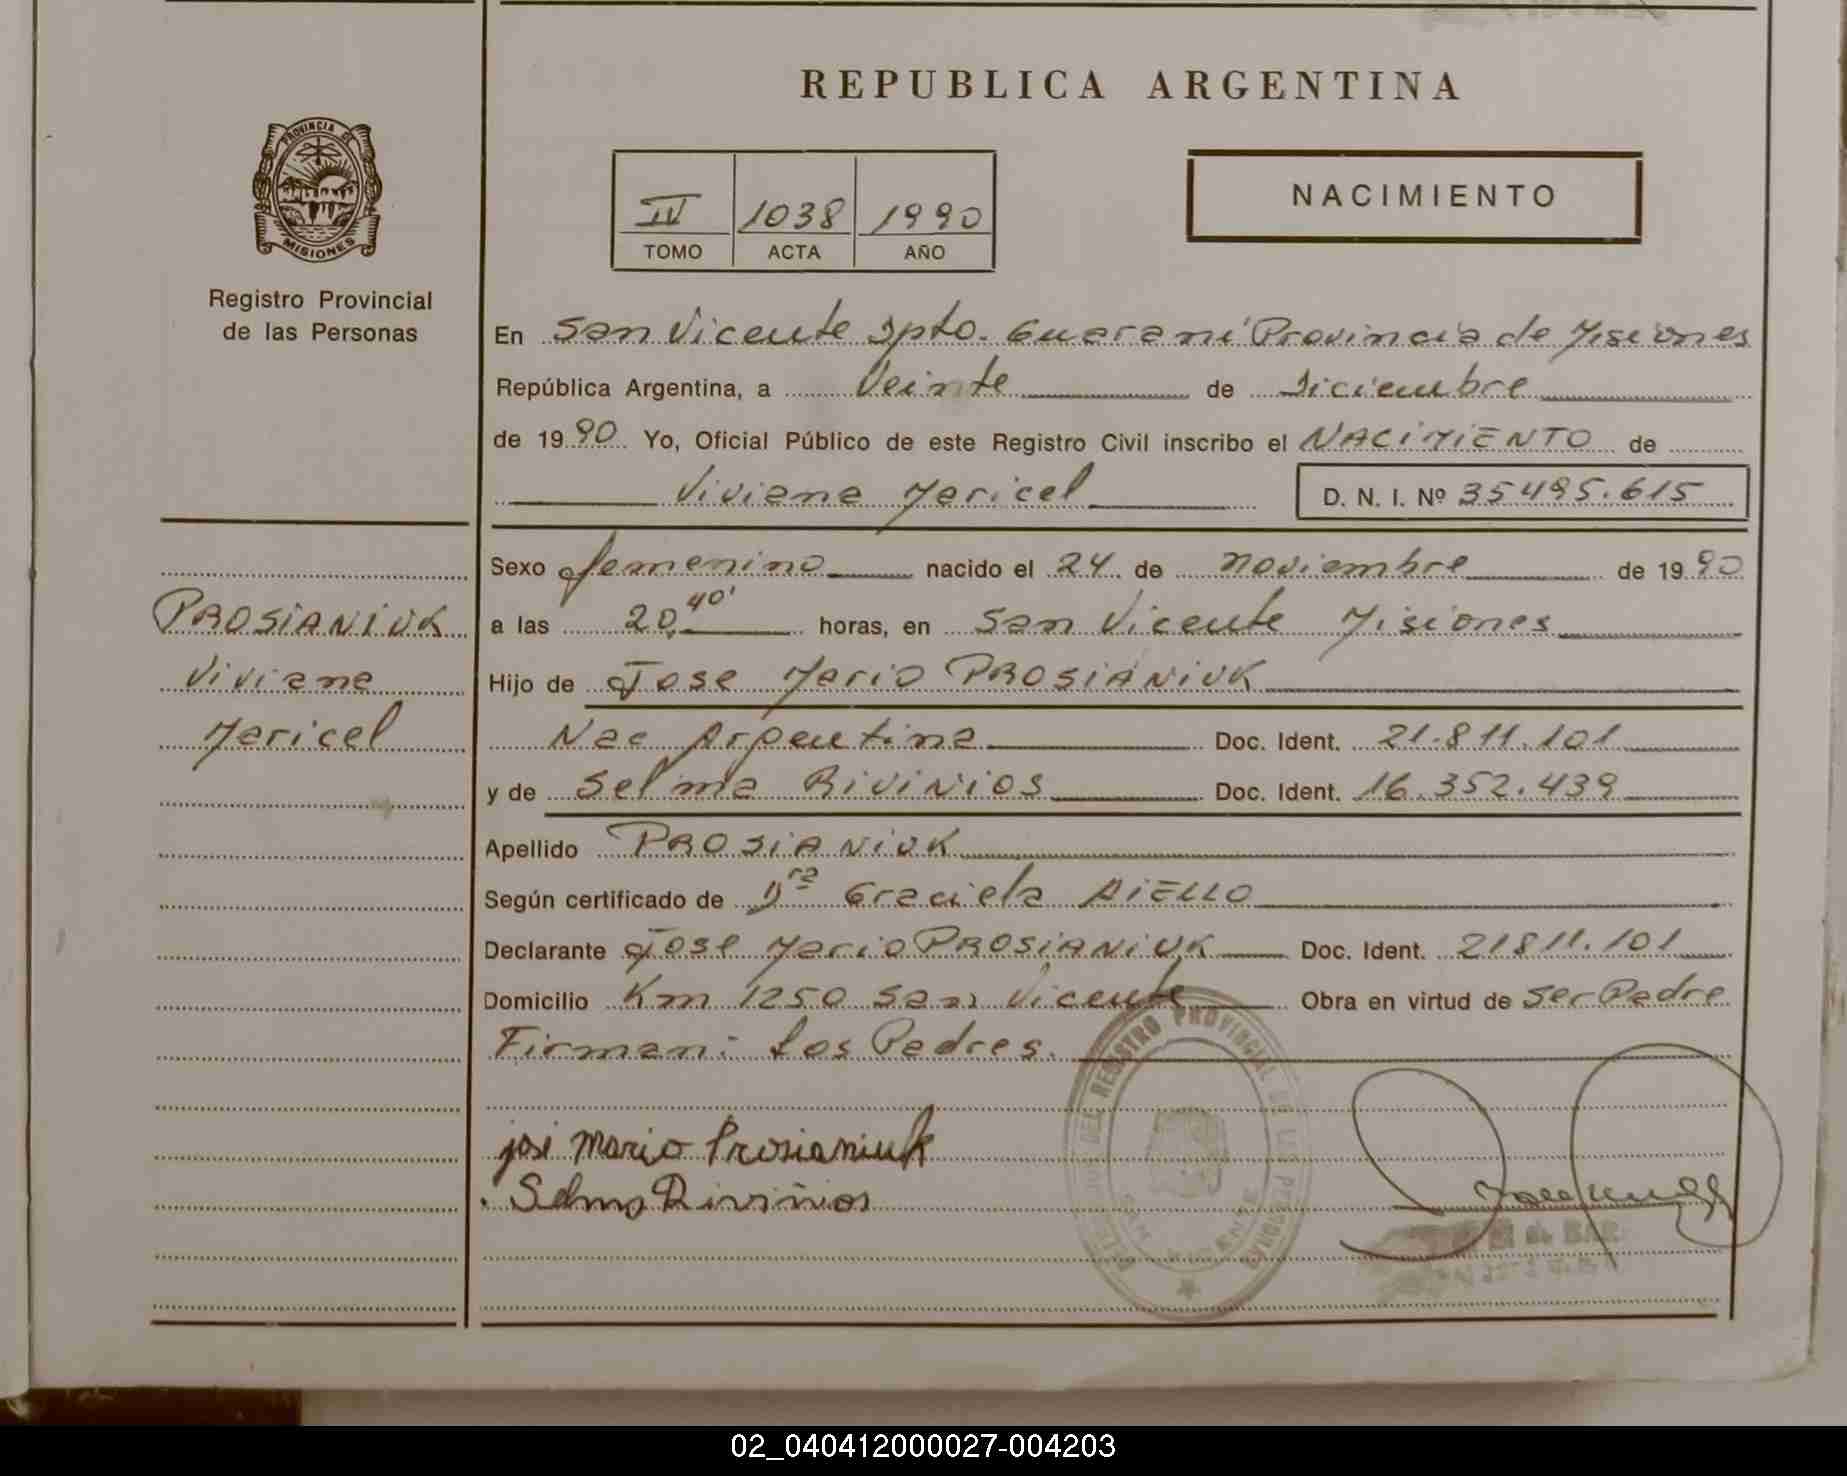 REPUBLICA ARGENTINA
PROVINCIA DE
MISIONES
Registro Provincial
de las Personas
IV 1038 1990
TOMO ACTA AÑO
NACIMIENTO
En San Vicente Dpto. Guaraní Provincia de Misiones
República Argentina, a Veinte de Diciembre
de 1990 Yo, Oficial Público de este Registro Civil inscribo el NACIMIENTO de
Viviana Maricel D. N. I. Nº 35495.615
Sexo femenino nacido el 24 de noviembre de 1990
a las 20,40' horas, en San Vicente Misiones
Hijo de Jose Mario PROSIANIUK
Nac Argentina Doc. Ident. 21.811.101
y de Selma RIVINIOS Doc. Ident. 16.352.439
Apellido PROSIANIUK
Según certificado de Dra Graciela AIELLO
Declarante Jose Mario PROSIANIUK Doc. Ident. 21811.101
Domicilio Km 1250 San Vicente Obra en virtud de Ser Padre
Firman: Los Padres.
PROSIANIUK
Viviana
Maricel
josé Mario Prosianiuk
Selma Riviñios
DEL REGISTRO PROVINCIAL DE LAS PERSONAS
SAN VICENTE
02_040412000027-004203